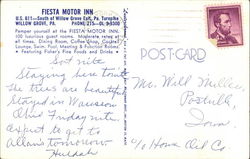 FIESTA MOTOR INN
U.S. 611—South of Willow Grove Exit, Pa. Turnpike
WILLOW GROVE, PA. PHONE 215-OL 9-8300
Pamper yourself at the FIESTA MOTOR INN.
100 luxurious guest rooms. Moderate rates at
all times. Dining Room, Coffee Shop, Cocktail
Lounge, Swim Pool, Meeting & Function Rooms.
Featuring Fisher's Fine Foods and Drinks
POST CARD
Sat nite
Staying here tonite
The trees are beautiful
Stayed in
Ohio Friday nite
expect to get to
tomorrow
Huldah
Mr. Will Miller
Postville,
Iowa
c/o Home Oil Co